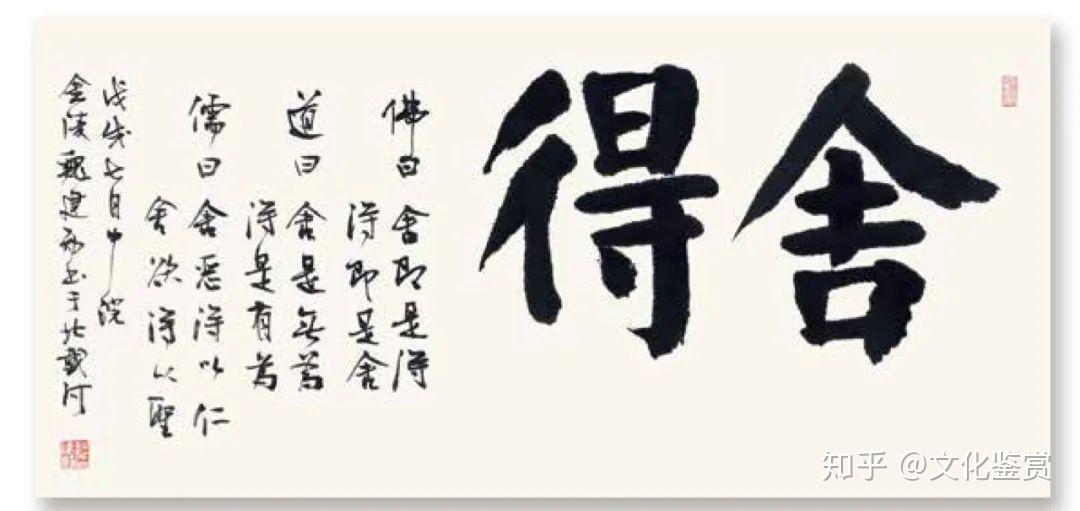 舍得
佛曰 舍即是得
得即是舍
道曰 舍是無為
得是有為
儒曰 舍恶得以仁
舍欲得以聖
戊戌七月中浣
金陵魏建书于北戴河
知乎 @文化鉴赏